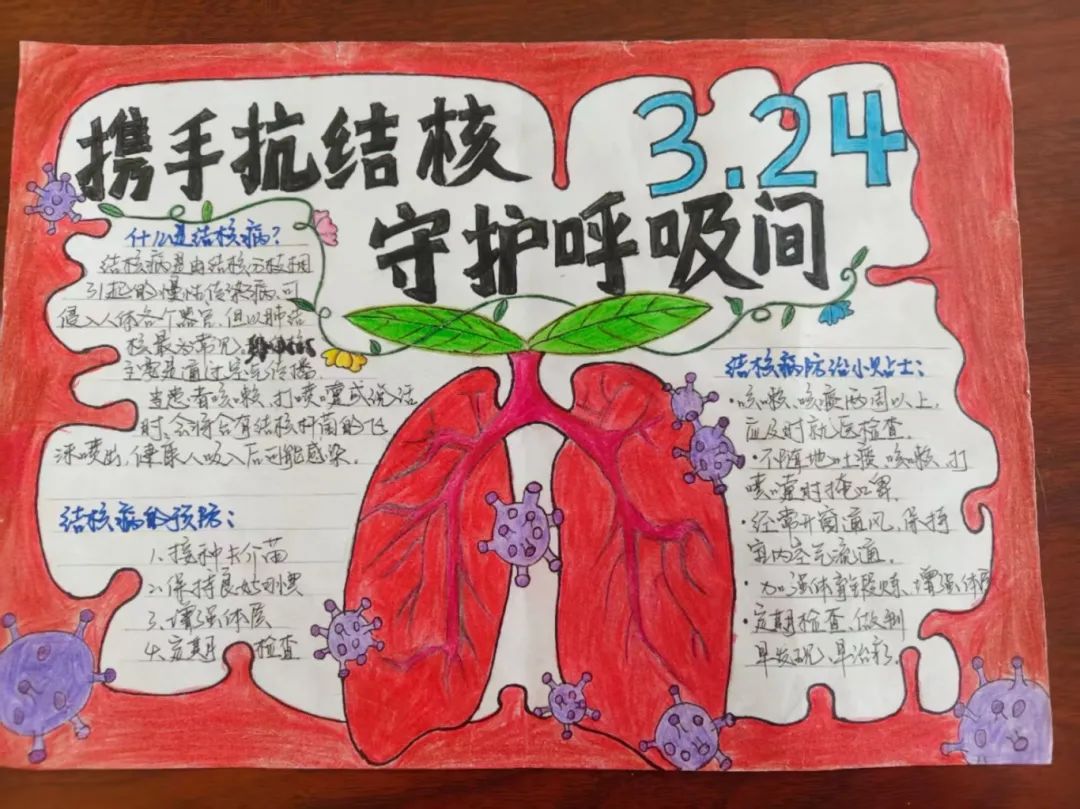 携手抗结核
3.24
守护呼吸间
什么是结核病?
结核病是由结核分枝杆
引起的慢性传染病,可
侵入人体各个器官,但以肺结
核最为常见,
主要是通过空气传播.
当患者咳嗽、打喷嚏或说话
时,会将含有结核杆菌的飞
沫喷出,健康人吸入后可能感染.
结核病的预防:
1.接种卡介苗
2.保持良好习惯
3.增强体质
4.定期 检查
结核病防治小贴士:
·咳嗽、咳痰两周以上,
应及时就医检查
·不随地吐痰、咳嗽、打
喷嚏时掩口鼻.
·经常开窗通风,保持
室内空气流通.
·加强体育锻炼、增强体质
·定期检查、做到
早发现、早治疗.